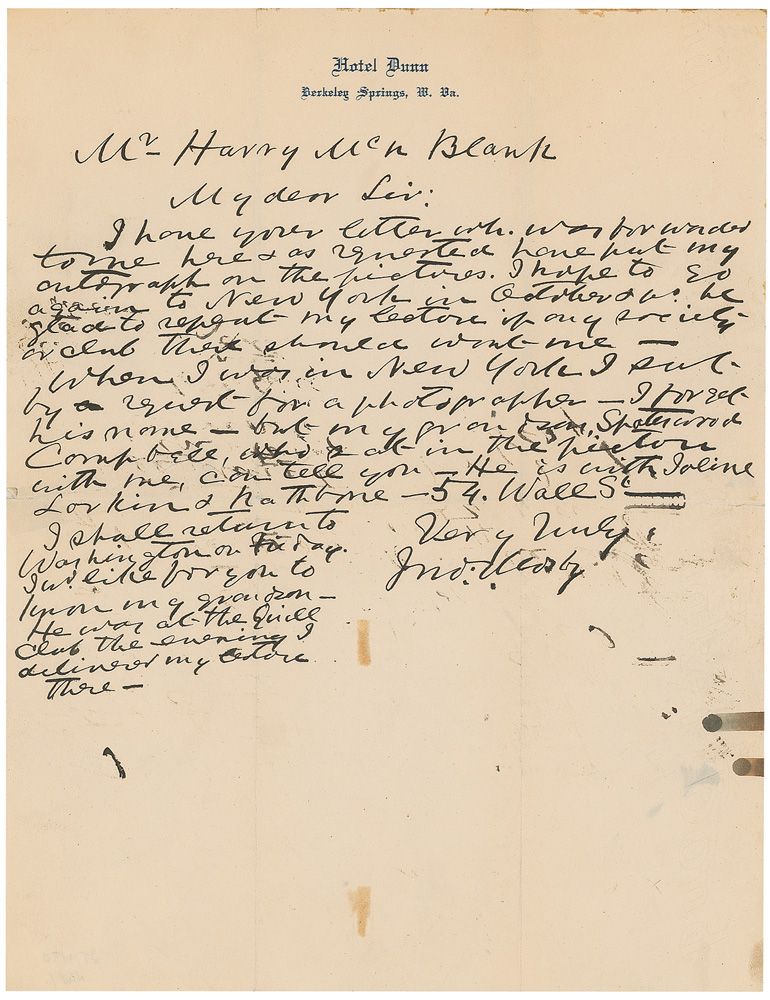 Hotel Dunn
Berkeley Springs, W. Va.
Mr Harry McN Blank
My dear Sir:
I have your letter wh. was forwarded
to me here & as requested have put my
autograph on the pictures. I hope to go
again to New York in October & wd. be
glad to repeat my lecture if any society
or club there should want me —
When I was in New York I sat
by request for a photographer — I forget
his name — but my grandson, Spottswood
Campbell, who sat in the picture
with me, can tell you — He is with Joline
Larkin & Rathbone — 54. Wall St
Very truly
Jno: S. Mosby
I shall return to
Washington on Friday.
I wd. like for you to
know my grandson —
He was at the Quill
Club the evening I
delivered my lecture
there —